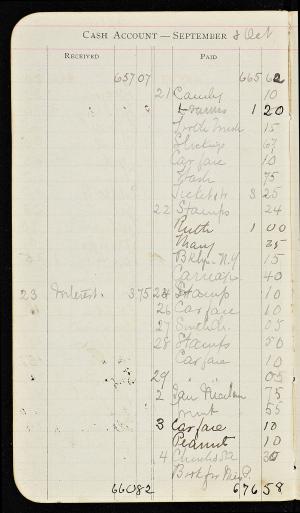 CASH ACCOUNT — SEPTEMBER & Oct
RECEIVED PAID
657 07 665 62
21 Candy 10
1 20
Tooth brush 15
67
Carfare 10
Wash 75
Tickets 3 25
22 Stamps 24
Ruth 1 00
Mary 35
Bklyn N.Y 15
Carriage 40
23 Interest. 3 75 24 Stamps 10
26 Carfare 10
27 05
28 Stamps 50
Carfare 10
29 " " 05
2 75
55
3 Carfare 10
Peanut 10
4 30
Book for
660 82 676 58